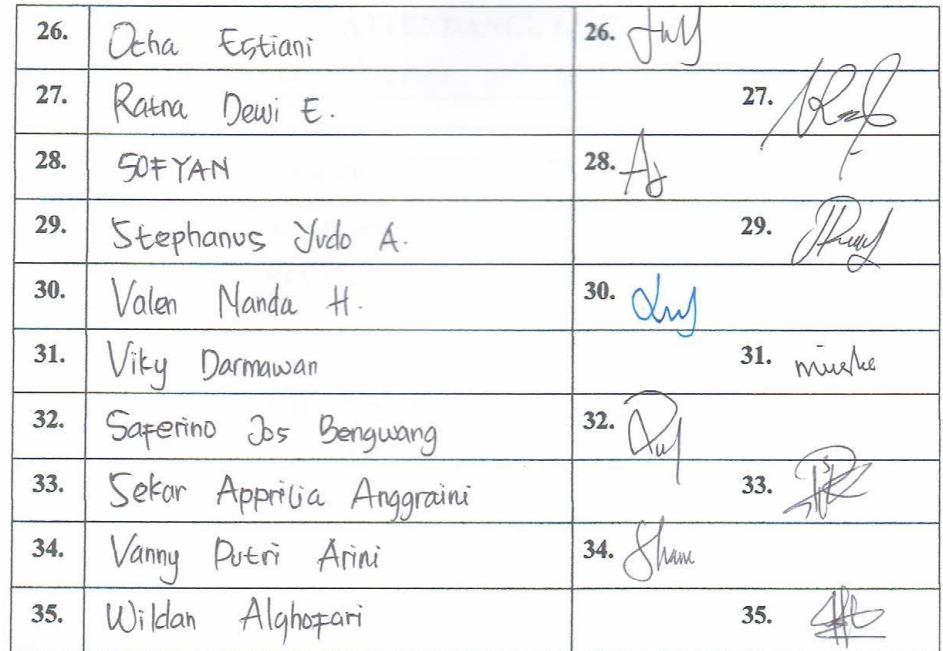 26. Otha Estiani 26.
27. Ratna Dewi E. 27.
28. SOFYAN 28.
29. Stephanus Yudo A. 29.
30. Valen Nanda H. 30.
31. Viky Darmawan 31.
32. Saferino Jos Bengwang 32.
33. Sekar Apprilia Anggraini 33.
34. Vanny Putri Arini 34.
35. Wildan Alghofari 35.